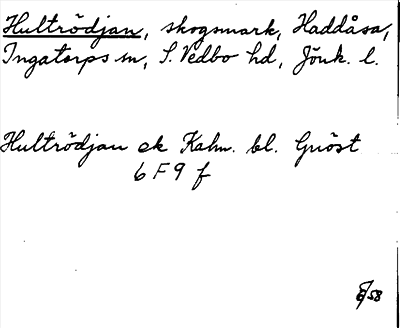 Hultrödjan, skogsmark, Haddåsa,
Ingatorps sn, S. Vedbo hd, Jönk. l.
Hultrödjan ek Kahn. bl. Gnöst
6 F 9 f
/58